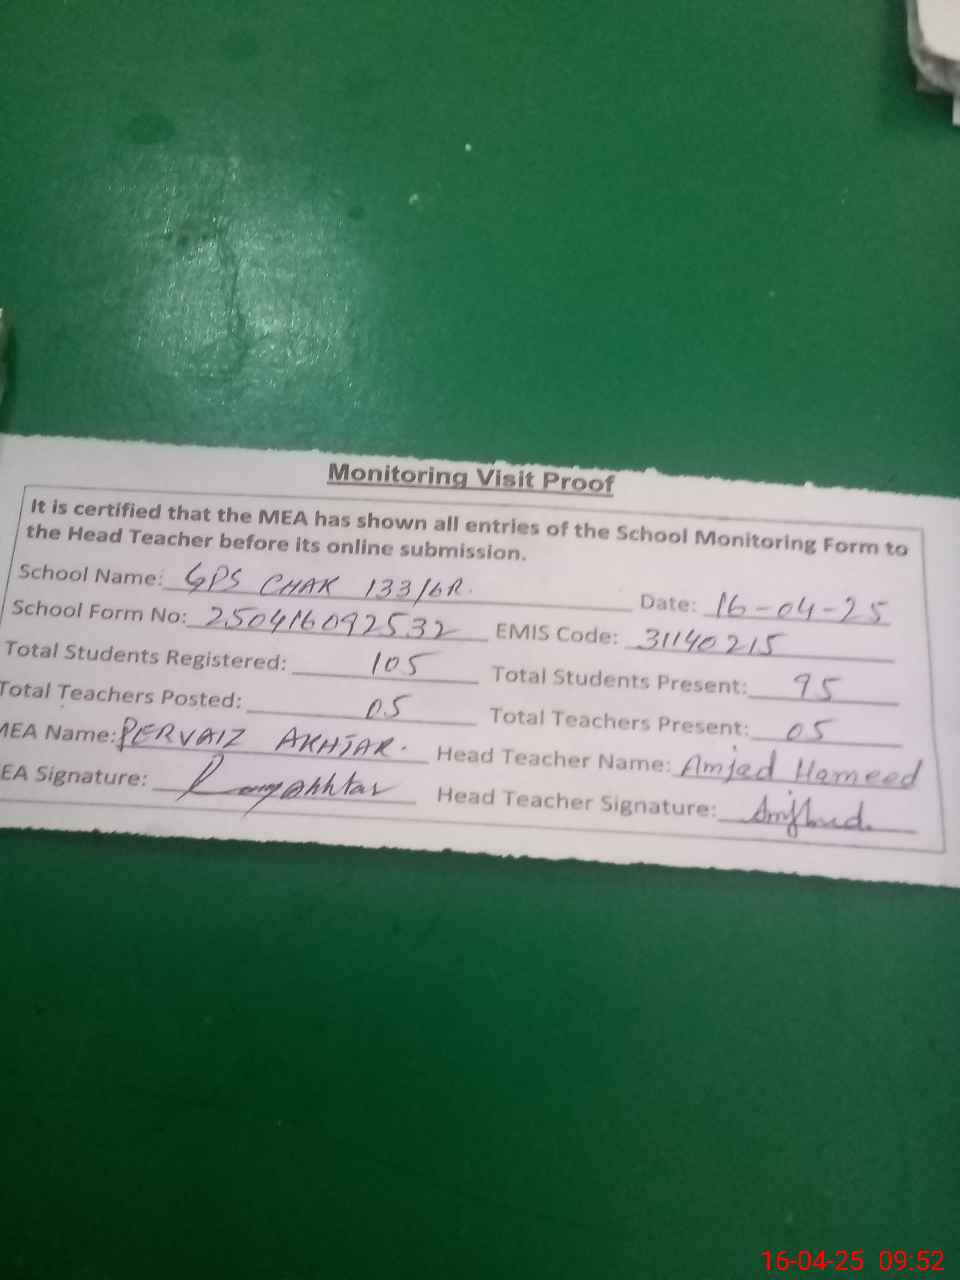 Monitoring Visit Proof
It is certified that the MEA has shown all entries of the School Monitoring Form to
the Head Teacher before its online submission.
School Name: GPS CHAK 133/6R. Date: 16-04-25
School Form No: 250416092532 EMIS Code: 31140215
Total Students Registered: 105 Total Students Present: 95
Total Teachers Posted: 05 Total Teachers Present: 05
MEA Name: PERVAIZ AKHTAR. Head Teacher Name: Amjad Hameed
EA Signature: Head Teacher Signature:
16-04-25 09:52